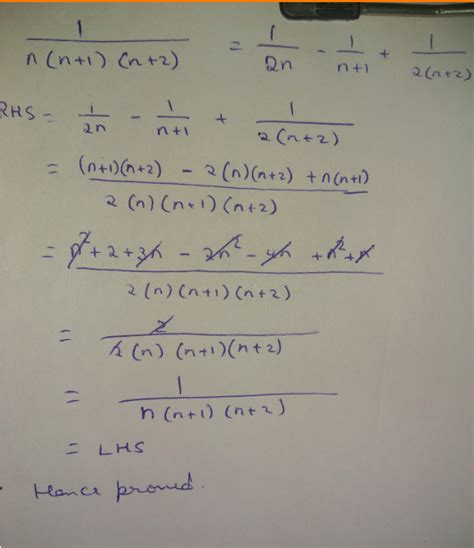 1/(n(n+1)(n+2)) = 1/2n - 1/(n+1) + 1/(2(n+2))
RHS = 1/2n - 1/(n+1) + 1/(2(n+2))
= ((n+1)(n+2) - 2(n)(n+2) + n(n+1))/(2(n)(n+1)(n+2))
= (n²+2+3n - 2n² - 4n + n²+n)/(2(n)(n+1)(n+2))
= 2/(2(n)(n+1)(n+2))
= 1/(n(n+1)(n+2))
= LHS
Hence proved.